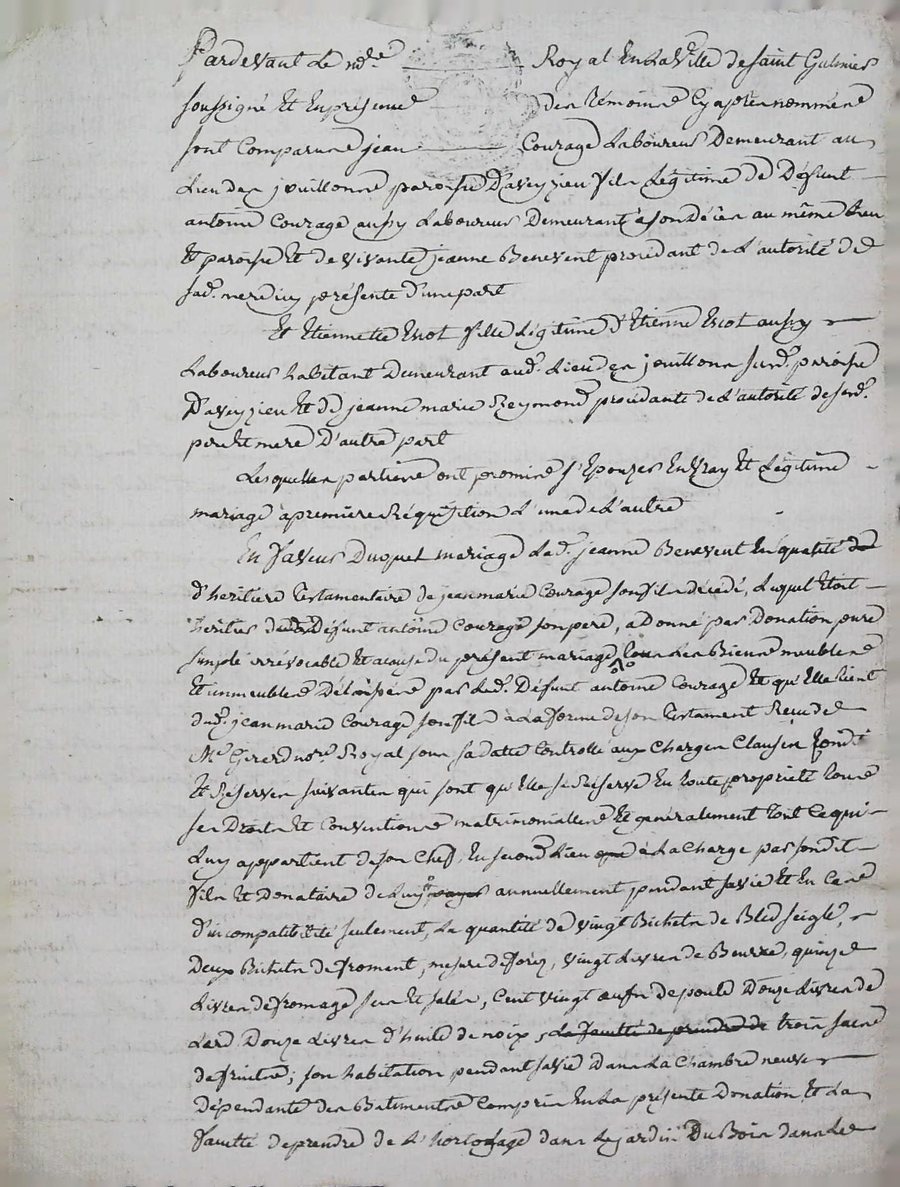 Pardevant Le no.re Royal En La Ville de Saint Galmier
soussigné Et En présence des Témoins Cy après nommés
sont Comparus jean Courage Laboureur Demeurant au
Lieu des jouillons paroisse D'aveyzieu fils Légitime de Défunt
antoine Courage aussy Laboureur Demeurant a son décès au même lieu
Et paroisse Et de vivante jeanne Benevent procédant de L'autorité de
sad. mere icy présente d'une part
Et Etiennette Escot fille Légitime d'Etienne Escot aussy
Laboureur habitant Demeurant aud. Lieu des jouillons susd. paroisse
D'aveyzieu Et de jeanne marie Reymond procédante de L'autorité de sesd.
pere Et mere D'autre part
Lesquelles parties ont promis s'Epouser En vray Et Légitime
mariage à premiere Réquisition L'une de L'autre
En faveur Duquel mariage Lad. jeanne Benevent En qualité de
d'héritière Testamentaire de jean marie Courage son fils décédé, Lequel étoit
héritier du Défunt antoine Courage son pere, a Donné par Donation pure
simple irrévocable Et a cause du présent mariage Les Biens meubles
Et immeubles Délaissés par Led. Défunt antoine Courage Et qu'Elle tient
dud. jean marie Courage son fils à La forme de son Testament Reçu de
Me Girerd no.re Royal sous sa date Controllé aux Charges Clauses
Et Réserves suivantes qui sont qu'Elle se Réserve En toute propriété tous
ses Droits Et Conventions matrimoniales Et généralement tout Ce qui
Luy appartient de son Chef, En second Lieu à La Charge par sondit
fils Et Donataire de Luy annuellement pendant sa vie Et En Cas
d'incompatibilité seulement, La quantité de vingt Bichets de Bled seigle,
Deux Bichets de froment, mesure de forez, vingt Livres de Beurre, quinze
Livres de fromage sec Et salés, Cent vingt oeufs de poule Douze Livres de
Lard Douze Livres d'huile de noix, La faculté de prendre de trois sacs
de fruits; son habitation pendant sa vie Dans La Chambre neuve
dépendante des Batiments Compris En La présente Donation, Et La
faculté de prendre de L'hortolage dans Le jardin Du Bois dans Les